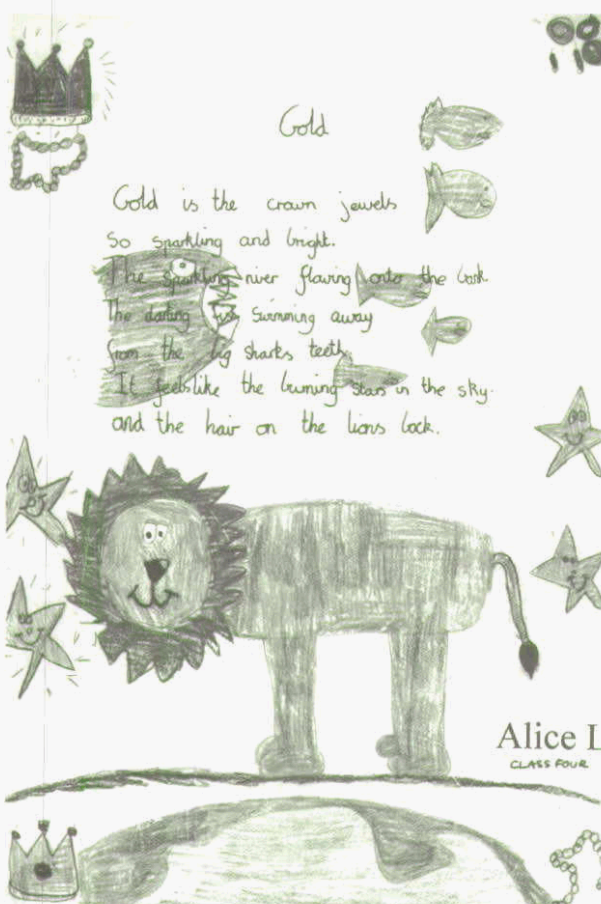 Gold
Gold is the crown jewels
So sparkling and bright.
The sparkling river flowing onto the bank.
The darting fish swimming away
from the big sharks teeth.
It feels like the burning stars in the sky.
and the hair on the lions back.
Alice L
CLASS FOUR